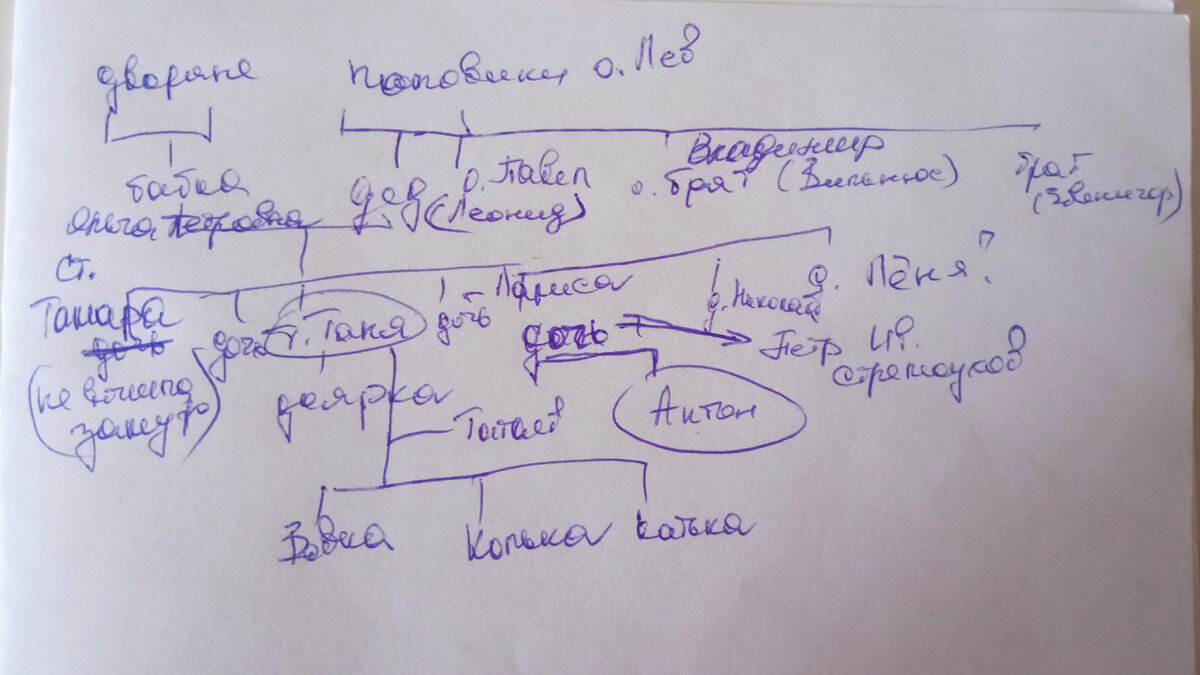 дворяне
поповики о. Лев
бабка
Ольга Петровна
дед
о. Павел
(Леонид)
Владимир
о. брат (Вильнюс)
брат
(Звенигор)
ст.
Тамара
дочь
(не вышла
замуж)
дочь
т. Таня
доярка
дочь
Лариса
дочь
д. Николай
д. Лёня?
Петр Ив.
Стремоухов
Антон
Вовка
Колька
Катька